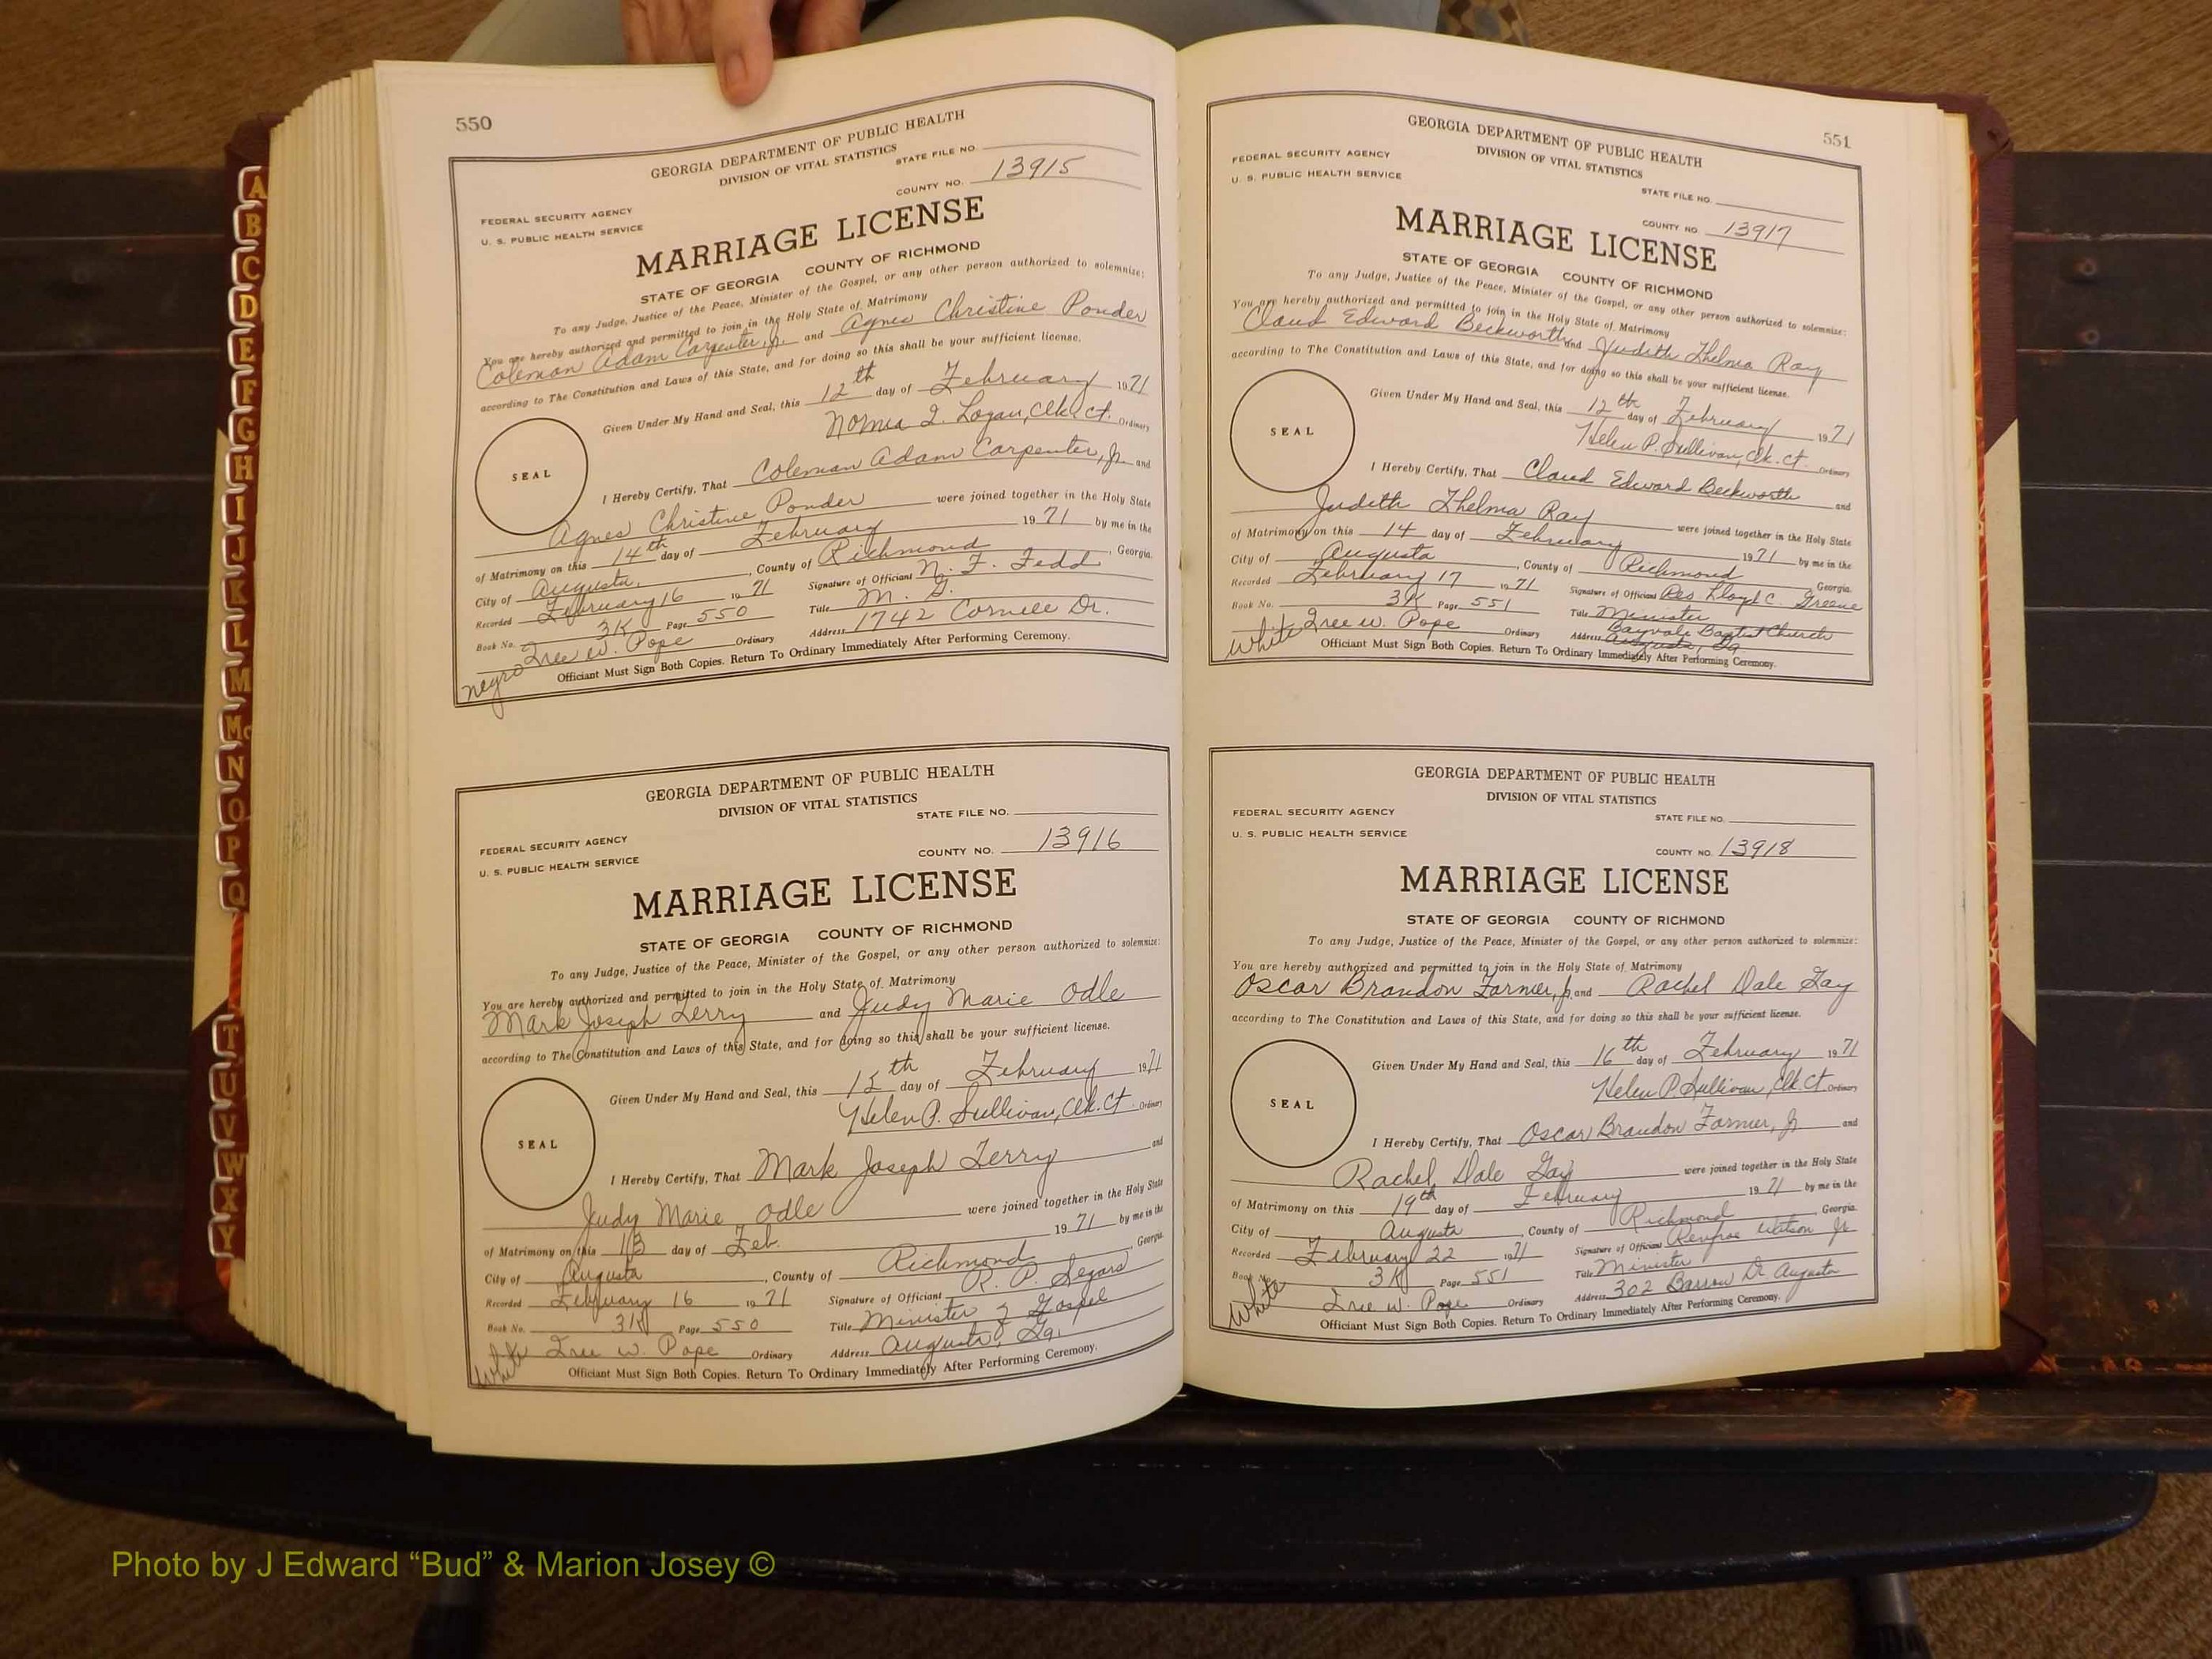 A
B
C
D
E
F
G
H
I
J
K
L
M
Mc
N
O
P
Q
T
U
V
W
X
Y
550
GEORGIA DEPARTMENT OF PUBLIC HEALTH
DIVISION OF VITAL STATISTICS
STATE FILE NO.
COUNTY NO. 13915
FEDERAL SECURITY AGENCY
U. S. PUBLIC HEALTH SERVICE
MARRIAGE LICENSE
STATE OF GEORGIA COUNTY OF RICHMOND
To any Judge, Justice of the Peace, Minister of the Gospel, or any other person authorized to solemnize:
You are hereby authorized and permitted to join in the Holy State of Matrimony
Coleman Adam Carpenter, Jr. and Agnes Christine Ponder
according to The Constitution and Laws of this State, and for doing so this shall be your sufficient license.
Given Under My Hand and Seal, this 12th day of February 1971
Logan, Clk. Ct. Ordinary
SEAL
I Hereby Certify, That Coleman Adam Carpenter, Jr. and
Agnes Christine Ponder were joined together in the Holy State
of Matrimony on this 14th day of February 1971 by me in the
City of Augusta, County of Richmond, Georgia.
Recorded February 16 1971 Signature of Officiant N. F. Fedd
Book No. 3K Page 550 Title M. G.
W. Pope Ordinary Address 1742 Dr.
negro Officiant Must Sign Both Copies. Return To Ordinary Immediately After Performing Ceremony.
GEORGIA DEPARTMENT OF PUBLIC HEALTH
DIVISION OF VITAL STATISTICS
STATE FILE NO.
FEDERAL SECURITY AGENCY
COUNTY NO. 13916
U. S. PUBLIC HEALTH SERVICE
MARRIAGE LICENSE
STATE OF GEORGIA COUNTY OF RICHMOND
To any Judge, Justice of the Peace, Minister of the Gospel, or any other person authorized to solemnize:
You are hereby authorized and permitted to join in the Holy State of Matrimony
Mark Joseph Terry and Judy Marie Odle
according to The Constitution and Laws of this State, and for doing so this shall be your sufficient license.
Given Under My Hand and Seal, this 12th day of February 1971
Helen P. Sullivan, Clk. Ct. Ordinary
SEAL
I Hereby Certify, That Mark Joseph Terry and
Judy Marie Odle were joined together in the Holy State
of Matrimony on this 13 day of Feb. 1971 by me in the
City of Augusta, County of Richmond, Georgia
Recorded February 16 1971 Signature of Officiant R. P. Segars
Book No. 3K Page 550 Title Minister of Gospel
W. Pope Ordinary Address Augusta, Ga.
White Officiant Must Sign Both Copies. Return To Ordinary Immediately After Performing Ceremony.
551
GEORGIA DEPARTMENT OF PUBLIC HEALTH
DIVISION OF VITAL STATISTICS
FEDERAL SECURITY AGENCY
U. S. PUBLIC HEALTH SERVICE
STATE FILE NO.
COUNTY NO. 13917
MARRIAGE LICENSE
STATE OF GEORGIA COUNTY OF RICHMOND
To any Judge, Justice of the Peace, Minister of the Gospel, or any other person authorized to solemnize:
You are hereby authorized and permitted to join in the Holy State of Matrimony
Claud Edward Beckworth and Judith Thelma Ray
according to The Constitution and Laws of this State, and for doing so this shall be your sufficient license.
Given Under My Hand and Seal, this 12th day of February 1971
Helen P. Sullivan, Clk. Ct. Ordinary
SEAL
I Hereby Certify, That Claud Edward Beckworth and
Judith Thelma Ray were joined together in the Holy State
of Matrimony on this 14 day of February 1971 by me in the
City of Augusta, County of Richmond Georgia
Recorded February 17 1971 Signature of Officiant Lloyd C. Greene
Book No. 3K Page 551 Title Minister
W. Pope Ordinary Address Bayvale Baptist Church
Augusta, Ga
White Officiant Must Sign Both Copies. Return To Ordinary Immediately After Performing Ceremony.
GEORGIA DEPARTMENT OF PUBLIC HEALTH
DIVISION OF VITAL STATISTICS
FEDERAL SECURITY AGENCY
STATE FILE NO.
U. S. PUBLIC HEALTH SERVICE
COUNTY NO. 13918
MARRIAGE LICENSE
STATE OF GEORGIA COUNTY OF RICHMOND
To any Judge, Justice of the Peace, Minister of the Gospel, or any other person authorized to solemnize:
You are hereby authorized and permitted to join in the Holy State of Matrimony
Oscar Brandon Farmer, Jr. and Rachel Dale Gay
according to The Constitution and Laws of this State, and for doing so this shall be your sufficient license.
Given Under My Hand and Seal, this 16th day of February 1971
Helen P. Sullivan, Clk. Ct. Ordinary
SEAL
I Hereby Certify, That Oscar Brandon Farmer, Jr and
Rachel Dale Gay were joined together in the Holy State
of Matrimony on this 19th day of February 1971 by me in the
City of Augusta County of Richmond, Georgia
Recorded February 22 1971 Signature of Officiant Renfroe Watson Jr
Book No. 3K Page 551 Title Minister
W. Pope Ordinary Address 302 Barrow Dr Augusta
White Officiant Must Sign Both Copies. Return To Ordinary Immediately After Performing Ceremony.
Photo by J Edward “Bud” & Marion Josey ©